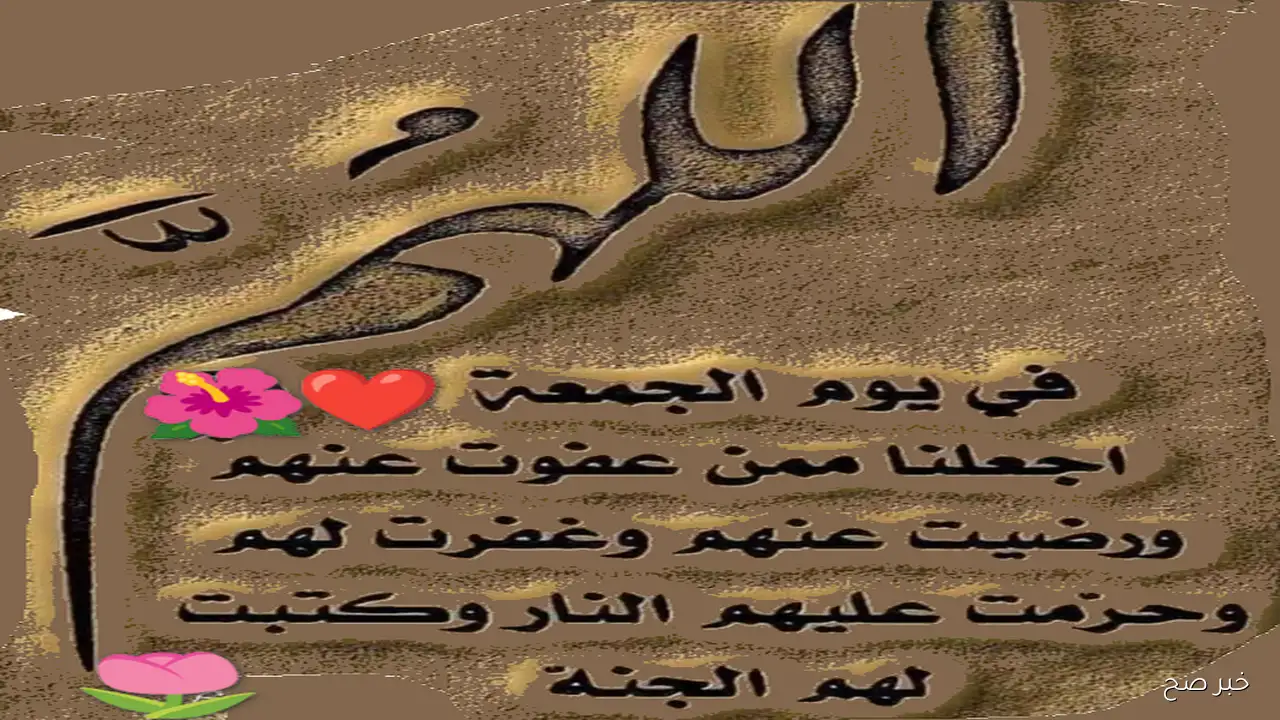 اللهمّ
في يوم الجمعة
اجعلنا ممن عفوت عنهم
ورضيت عنهم وغفرت لهم
وحرّمت عليهم النار وكتبت
لهم الجنة
خبر صح